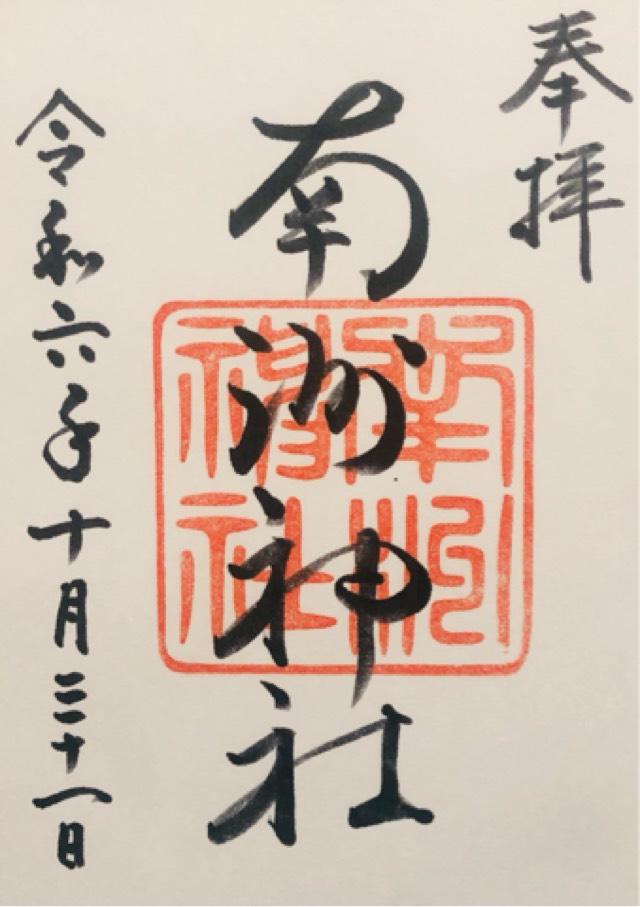 奉拝
南洲神社
南洲
神社
令和六年十月三十一日